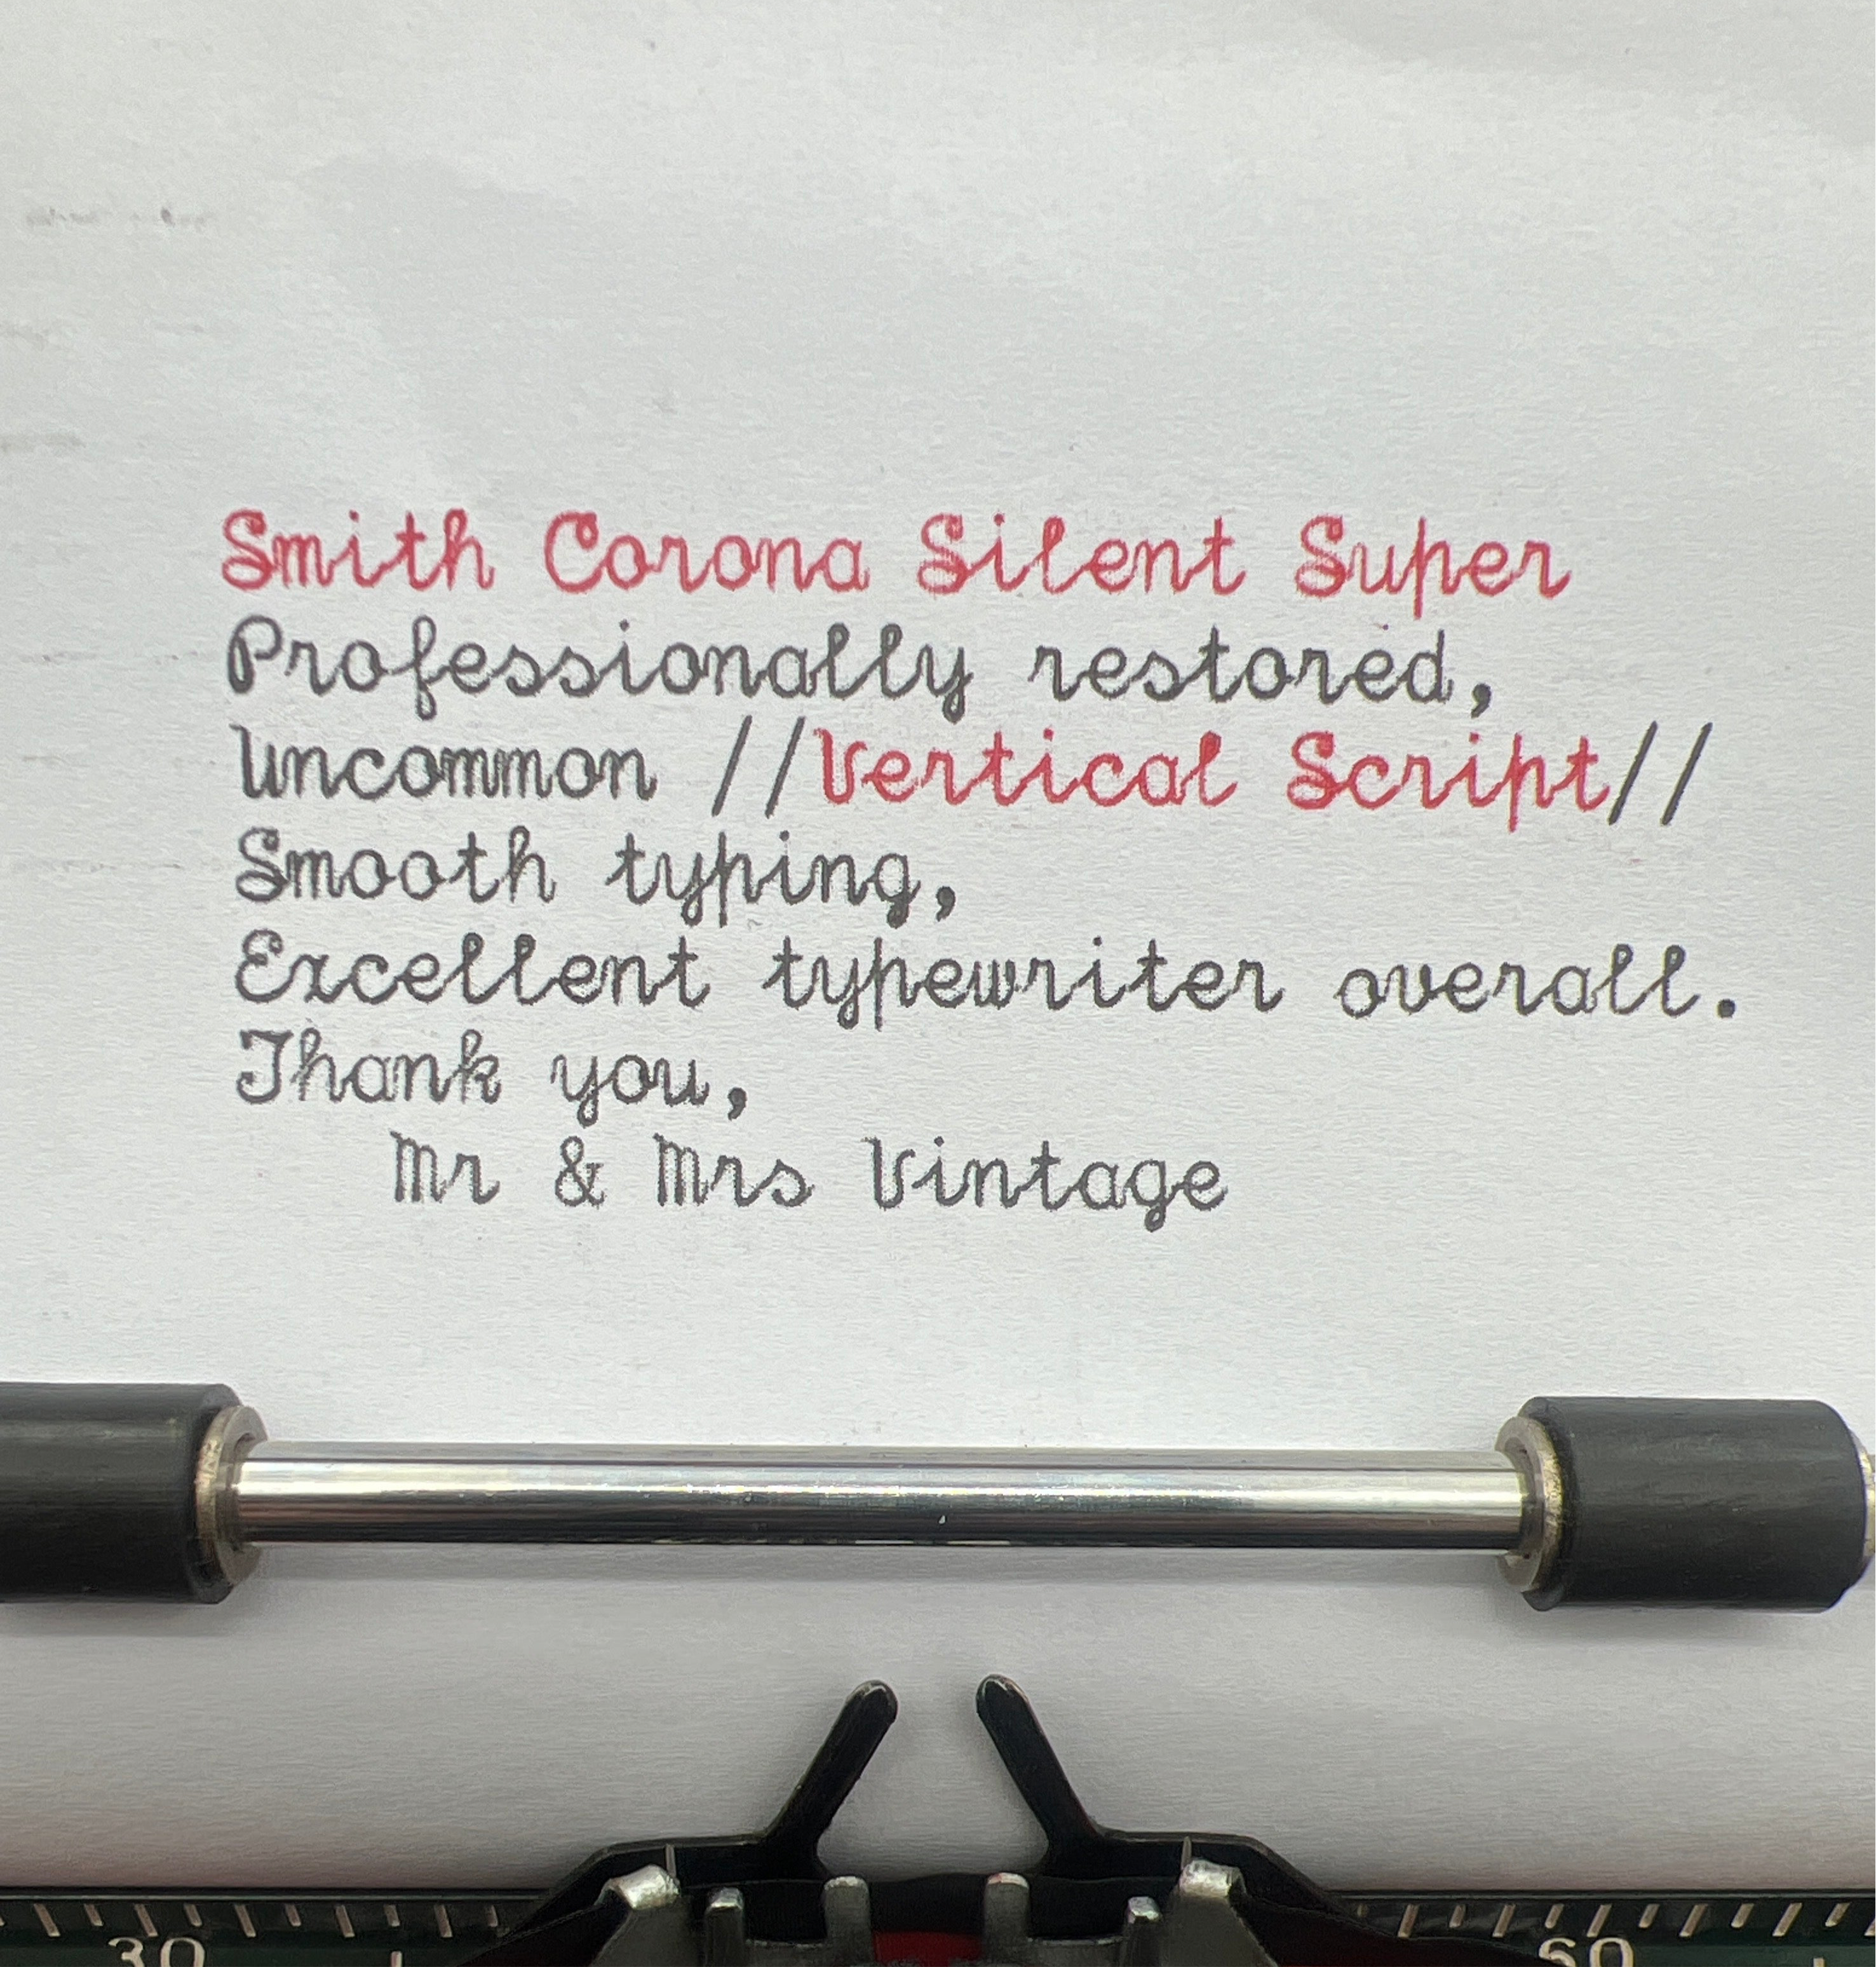 Smith Corona Silent Super
Professionally restored,
Uncommon //Vertical Script//
Smooth typing,
Excellent typewriter overall.
Thank you,
Mr & Mrs Vintage
30 60